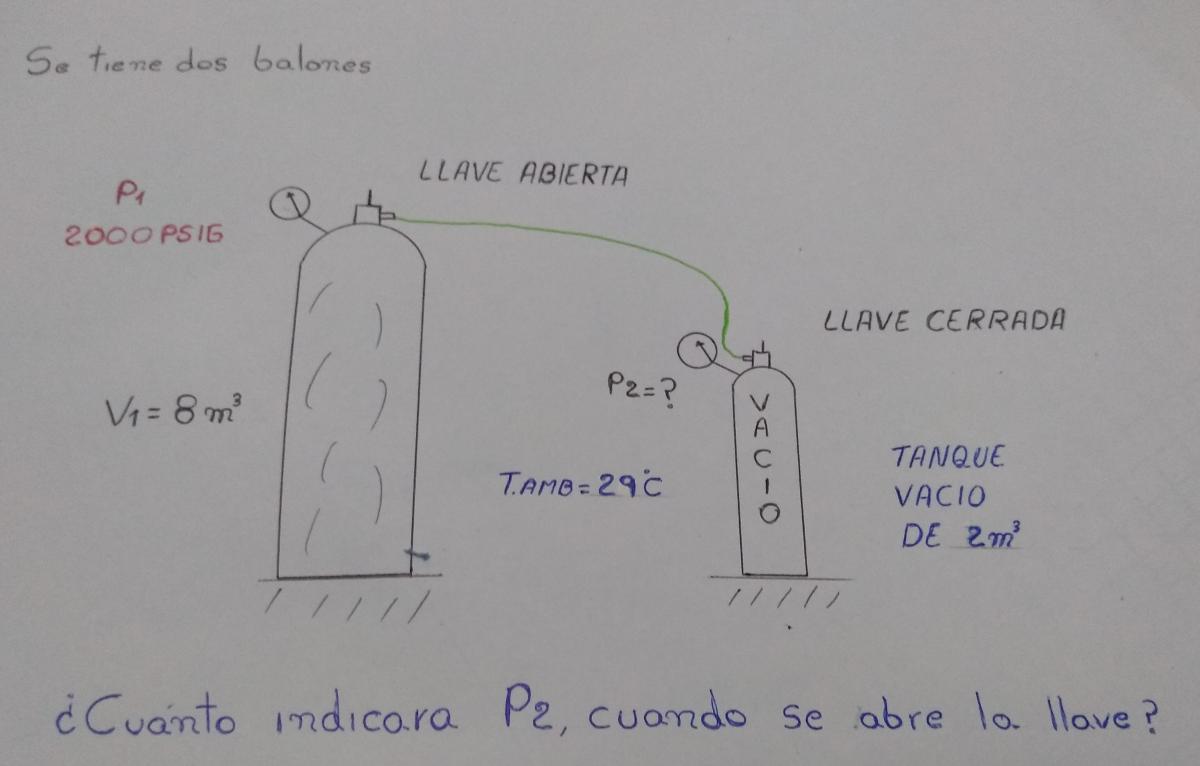 Se tiene dos balones
LLAVE ABIERTA
P1
2000 PSIG
LLAVE CERRADA
P2=?
V1 = 8 m³
VACIO
T.AMB = 29°C
TANQUE
VACIO
DE 2m³
¿Cuánto indicara P2, cuando se abre la llave?